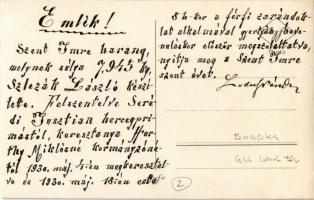 Emlék!
Szent Imre harang,
melynek súlya 7.945 kg.
Szlezák László készí-
tette. Felszentelve Seré-
di Jusztian herczegpri-
mástól, keresztanyja Hor-
thy Miklósné kormányzóné-
tól 1930. máj. 4-én megkeresztel-
ve és 1930. máj. 18-én este
8 h-kor a férfi zarándok-
lat alkalmával gyertyás
először megszólaltatva,
nyitja meg a Szent Imre
szent évet.
Bazilika
2